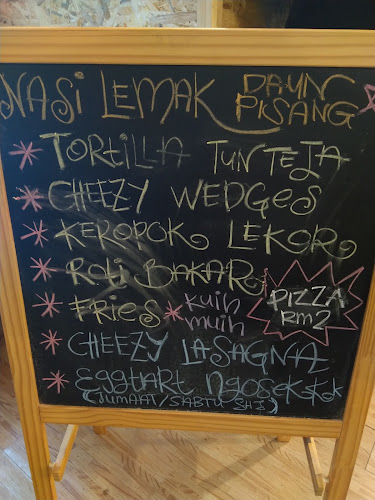 NASi LEMAK DAUN PISANG
TORTILLA TUN TEJA
CHEEZY WEDGES
KEROPOK LEKOR
ROTi BAKAR
FRiES
KUiH MUiH
PIZZA RM2
CHEEZY LASAGNA
Eggtart NgoseKtKtK
(JUMAAT/SABTU SHJ)